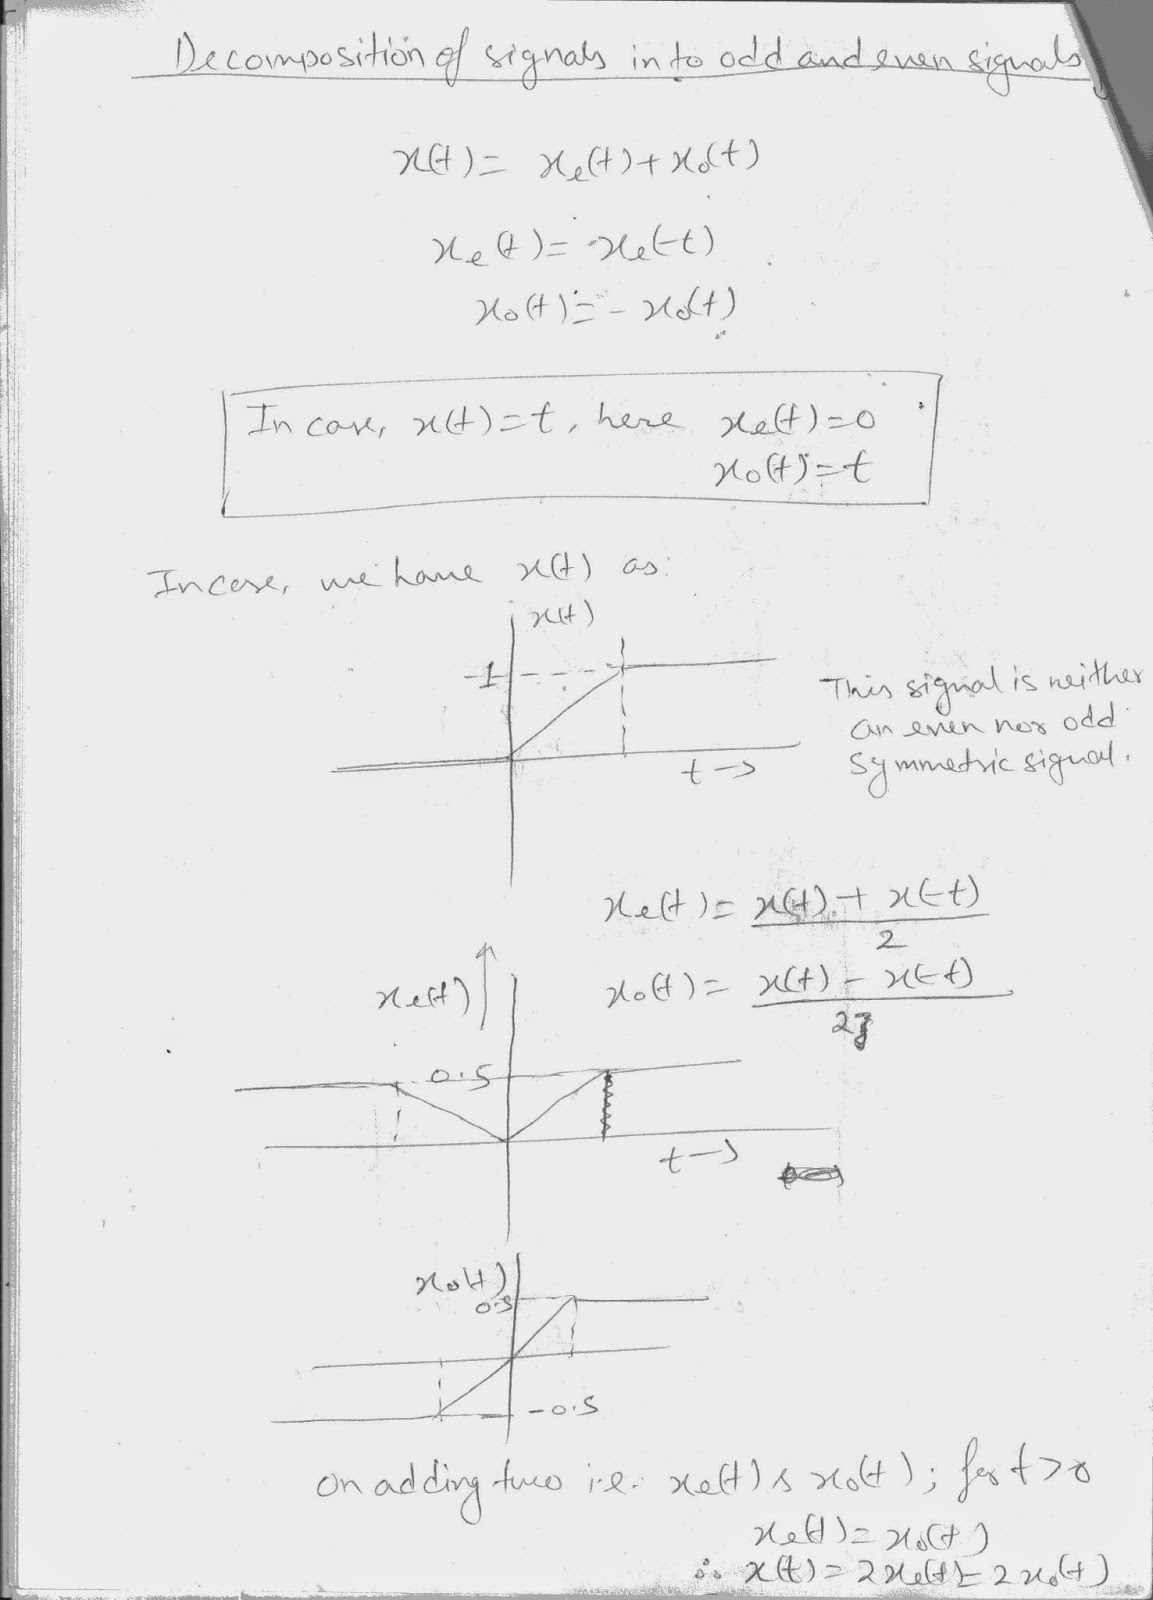 Decomposition of signals in to odd and even signals
x(t) = xe(t) + xo(t)
xe(t) = xe(-t)
xo(t) = - xo(t)
In case, x(t) = t, here xe(t) = 0
xo(t) = t
In case, we have x(t) as:
x(t)
1
t →
This signal is neither
an even nor odd
symmetric signal.
xe(t) = x(t) + x(-t)
2
xe(t)
xo(t) = x(t) - x(-t)
2
0.5
t →
xo(t)
0.5
-0.5
on adding two i.e. xe(t) & xo(t); for t>0
xe(t) = xo(t)
∴ x(t) = 2xe(t) = 2xo(t)